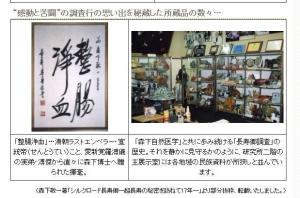 “感動と苦闘”の調査行の思い出を秘蔵した所蔵品の数々…
整腸
淨血
「整腸浄血」…清朝ラストエンペラー・宣
統帝(せんとうてい)こと、愛新覚羅溥儀
の実弟・溥傑から直々に森下博士へ贈
られた揮毫。
「森下自然医学」と共に歩み続ける「長寿郷調査」の
歴史。それを静かに見守るかのように、研究所二階の
主展示室には各地域の民族資料が所狭しと並んでい
ます。
(森下敬一著「シルクロード長寿郷―超長寿の秘密を訪ねて17年―」より部分抜粋、転載いたしました。)